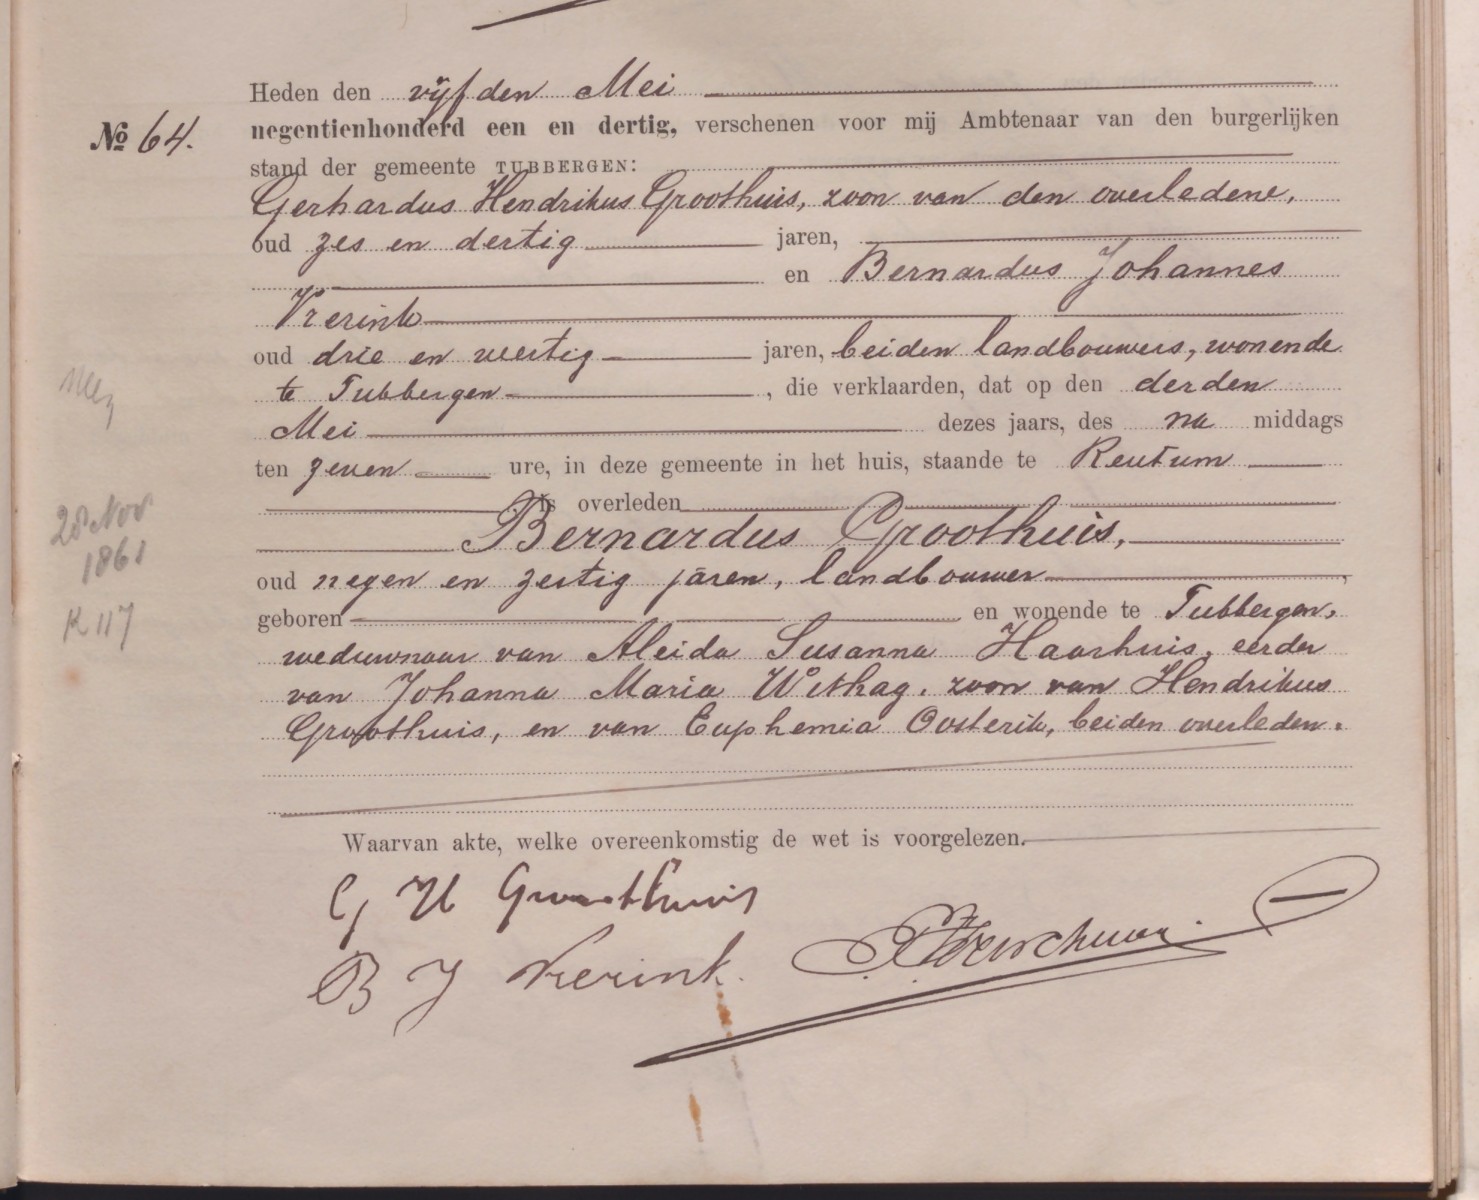 Heden den vijfden Mei
No 64.
negentienhonderd een en dertig, verschenen voor mij Ambtenaar van den burgerlijken
stand der gemeente TUBBERGEN:
Gerhardus Hendrikus Groothuis, zoon van den overledene,
oud zes en dertig jaren,
en Bernardus Johannes
Vrerink
oud drie en veertig jaren, beiden landbouwers, wonende
te Tubbergen, die verklaarden, dat op den derden
Mei dezes jaars, des na middags
ten zeven ure, in deze gemeente in het huis, staande te Reutum
is overleden
Bernardus Groothuis,
28 Nov
1861
oud negen en zestig jaren, landbouwer,
K 117
geboren en wonende te Tubbergen,
weduwnaar van Aleida Susanna Haarhuis, eerder
van Johanna Maria Withag, zoon van Hendrikus
Groothuis, en van Euphemia Oosterik, beiden overleden.
Waarvan akte, welke overeenkomstig de wet is voorgelezen.
G H Groothuis
B J Vrerink.